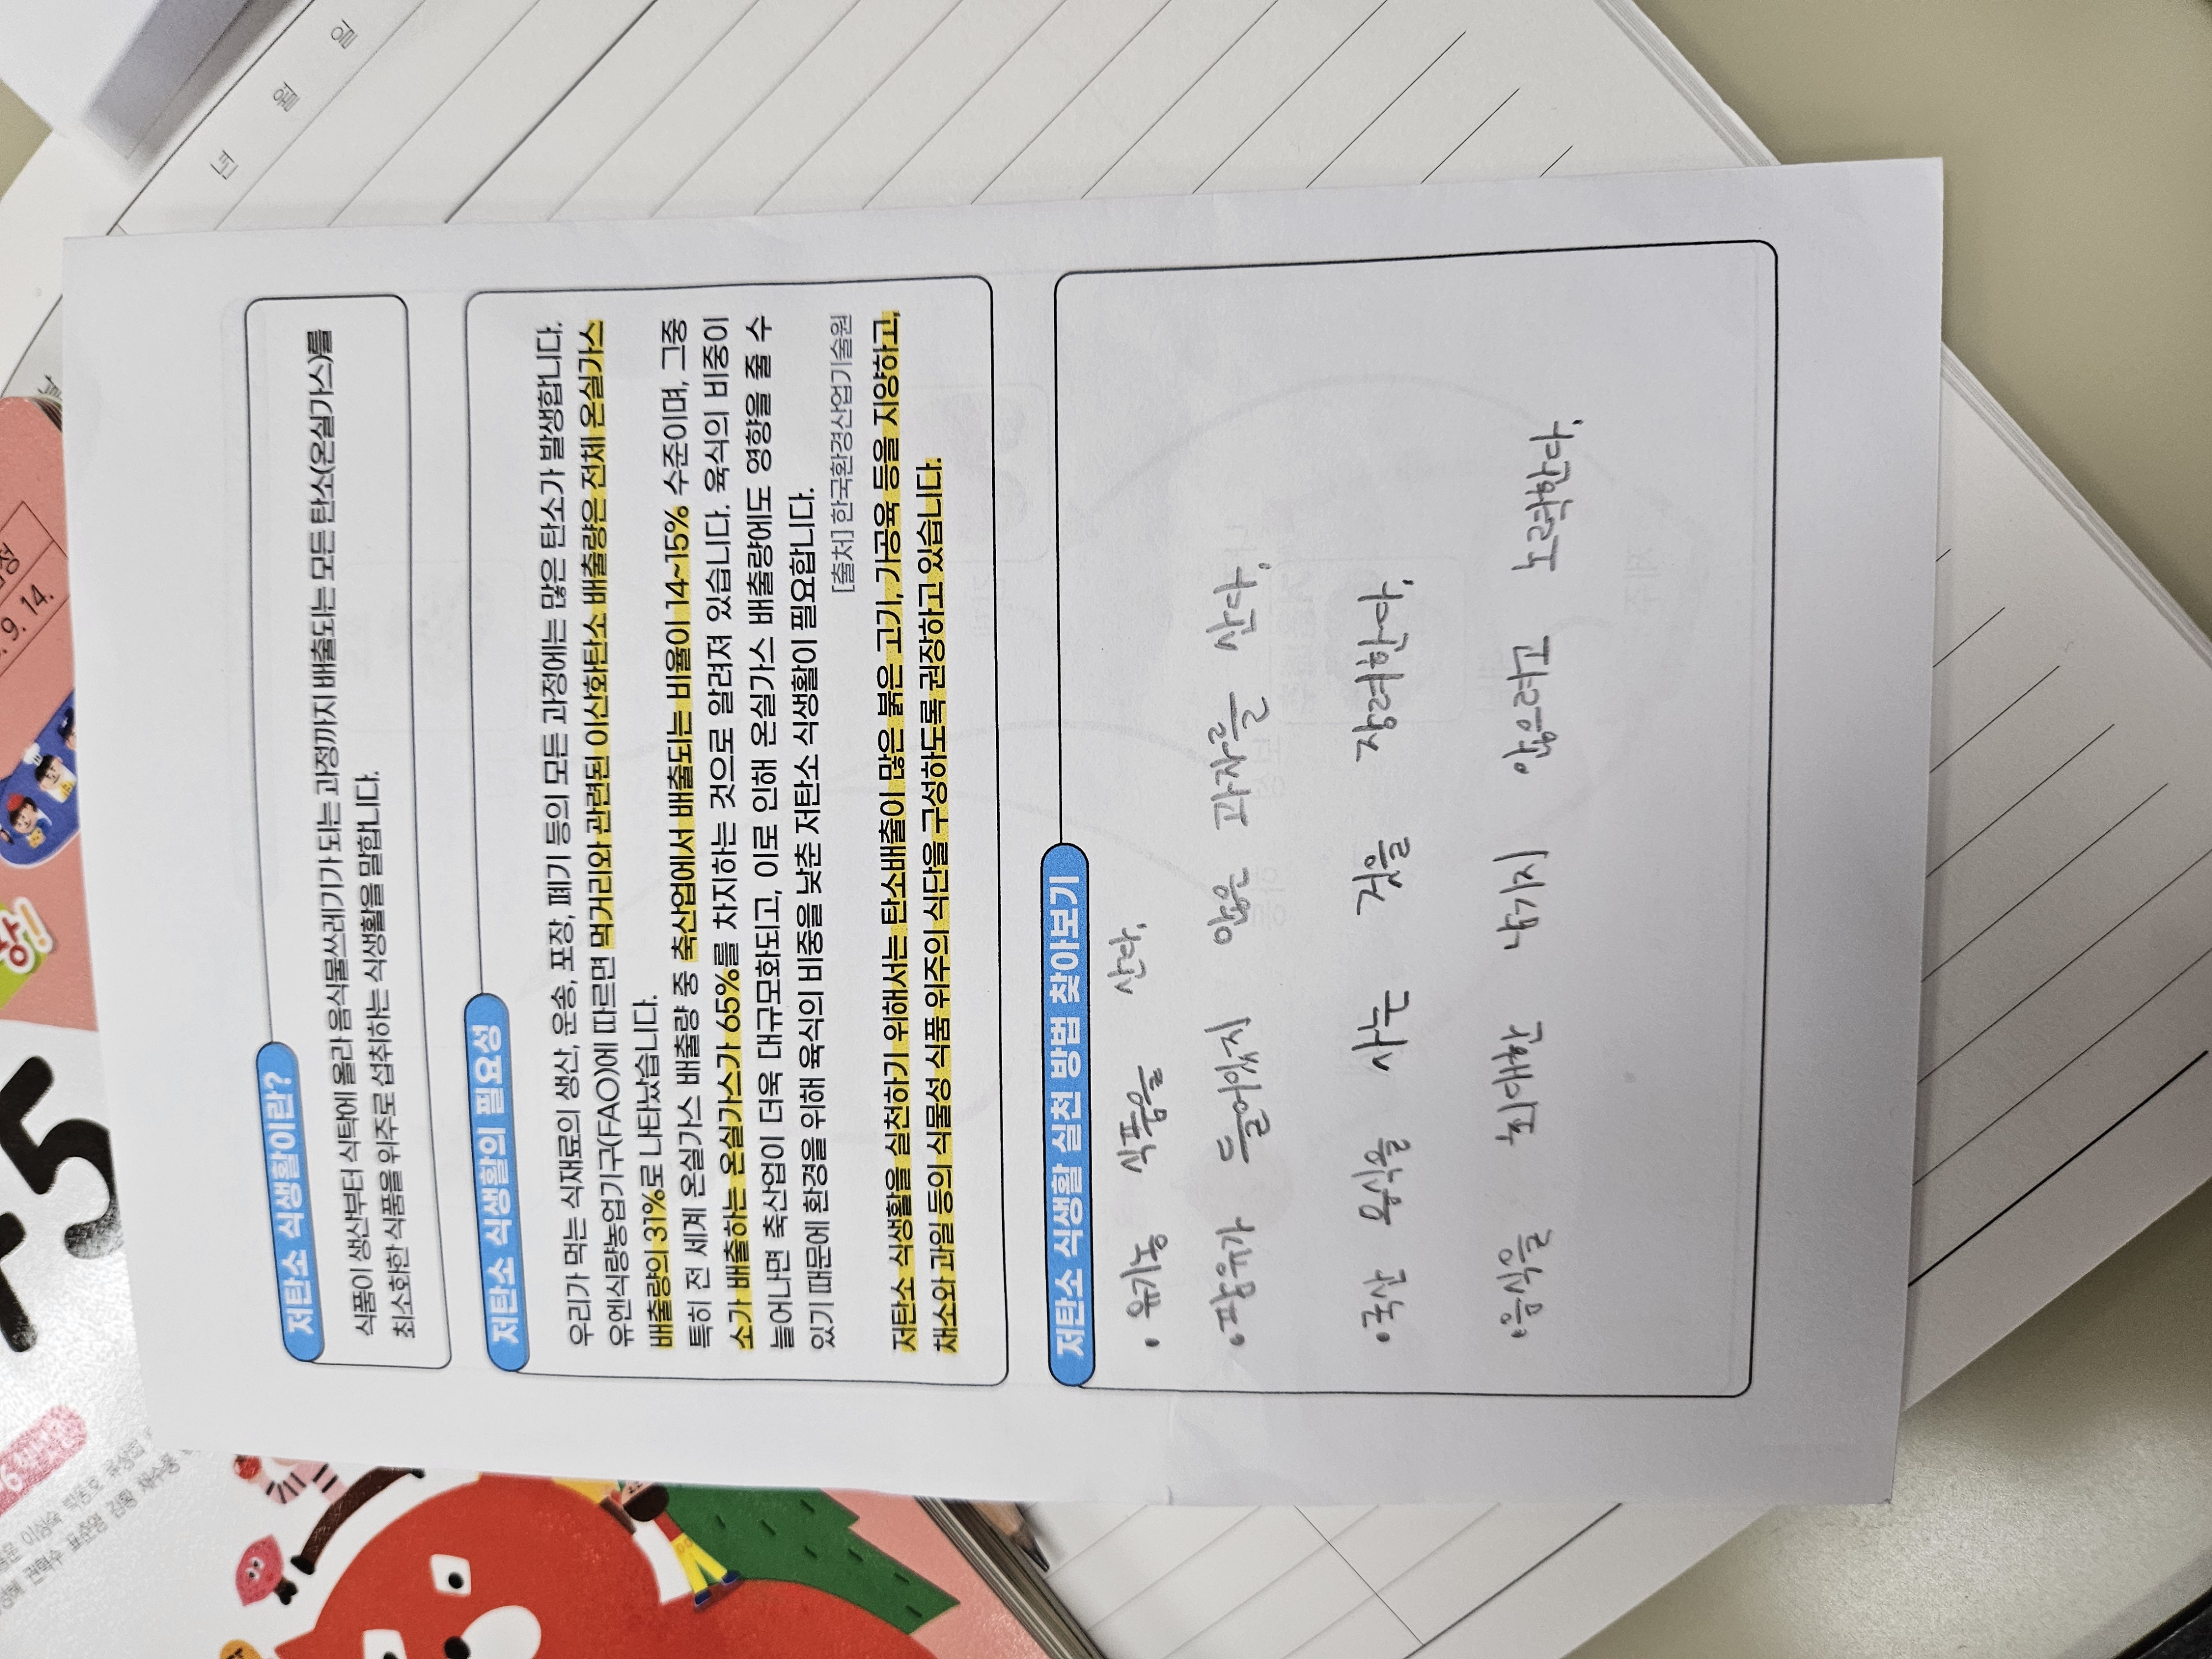 저탄소 식생활이란?
식품이 생산부터 식탁에 올라 음식물쓰레기가 되는 과정까지 배출되는 모든 탄소(온실가스)를
최소화한 식품을 위주로 섭취하는 식생활을 말합니다.
저탄소 식생활의 필요성
우리가 먹는 식재료의 생산, 운송, 포장, 폐기 등의 모든 과정에는 많은 탄소가 발생합니다.
유엔식량농업기구(FAO)에 따르면 먹거리와 관련된 이산화탄소 배출량은 전체 온실가스
배출량의 31%로 나타났습니다.
특히 전 세계 온실가스 배출량 중 축산업에서 배출되는 비율이 14~15% 수준이며, 그중
소가 배출하는 온실가스가 65%를 차지하는 것으로 알려져 있습니다. 육식의 비중이
늘어나면 축산업이 더욱 대규모화되고, 이로 인해 온실가스 배출량에도 영향을 줄 수
있기 때문에 환경을 위해 육식의 비중을 낮춘 저탄소 식생활이 필요합니다.
[출처] 한국환경산업기술원
저탄소 식생활을 실천하기 위해서는 탄소배출이 많은 붉은 고기, 가공육 등을 지양하고,
채소와 과일 등의 식물성 식품 위주의 식단을 구성하도록 권장하고 있습니다.
저탄소 식생활 실천 방법 찾아보기
• 유기농 식품을 산다.
• 팜유가 들어있지 않은 과자를 산다.
• 국산 음식을 사는 것을 장려한다.
• 음식을 최대한 남기지 않으려고 노력한다.
년 월 일
9. 14.
5